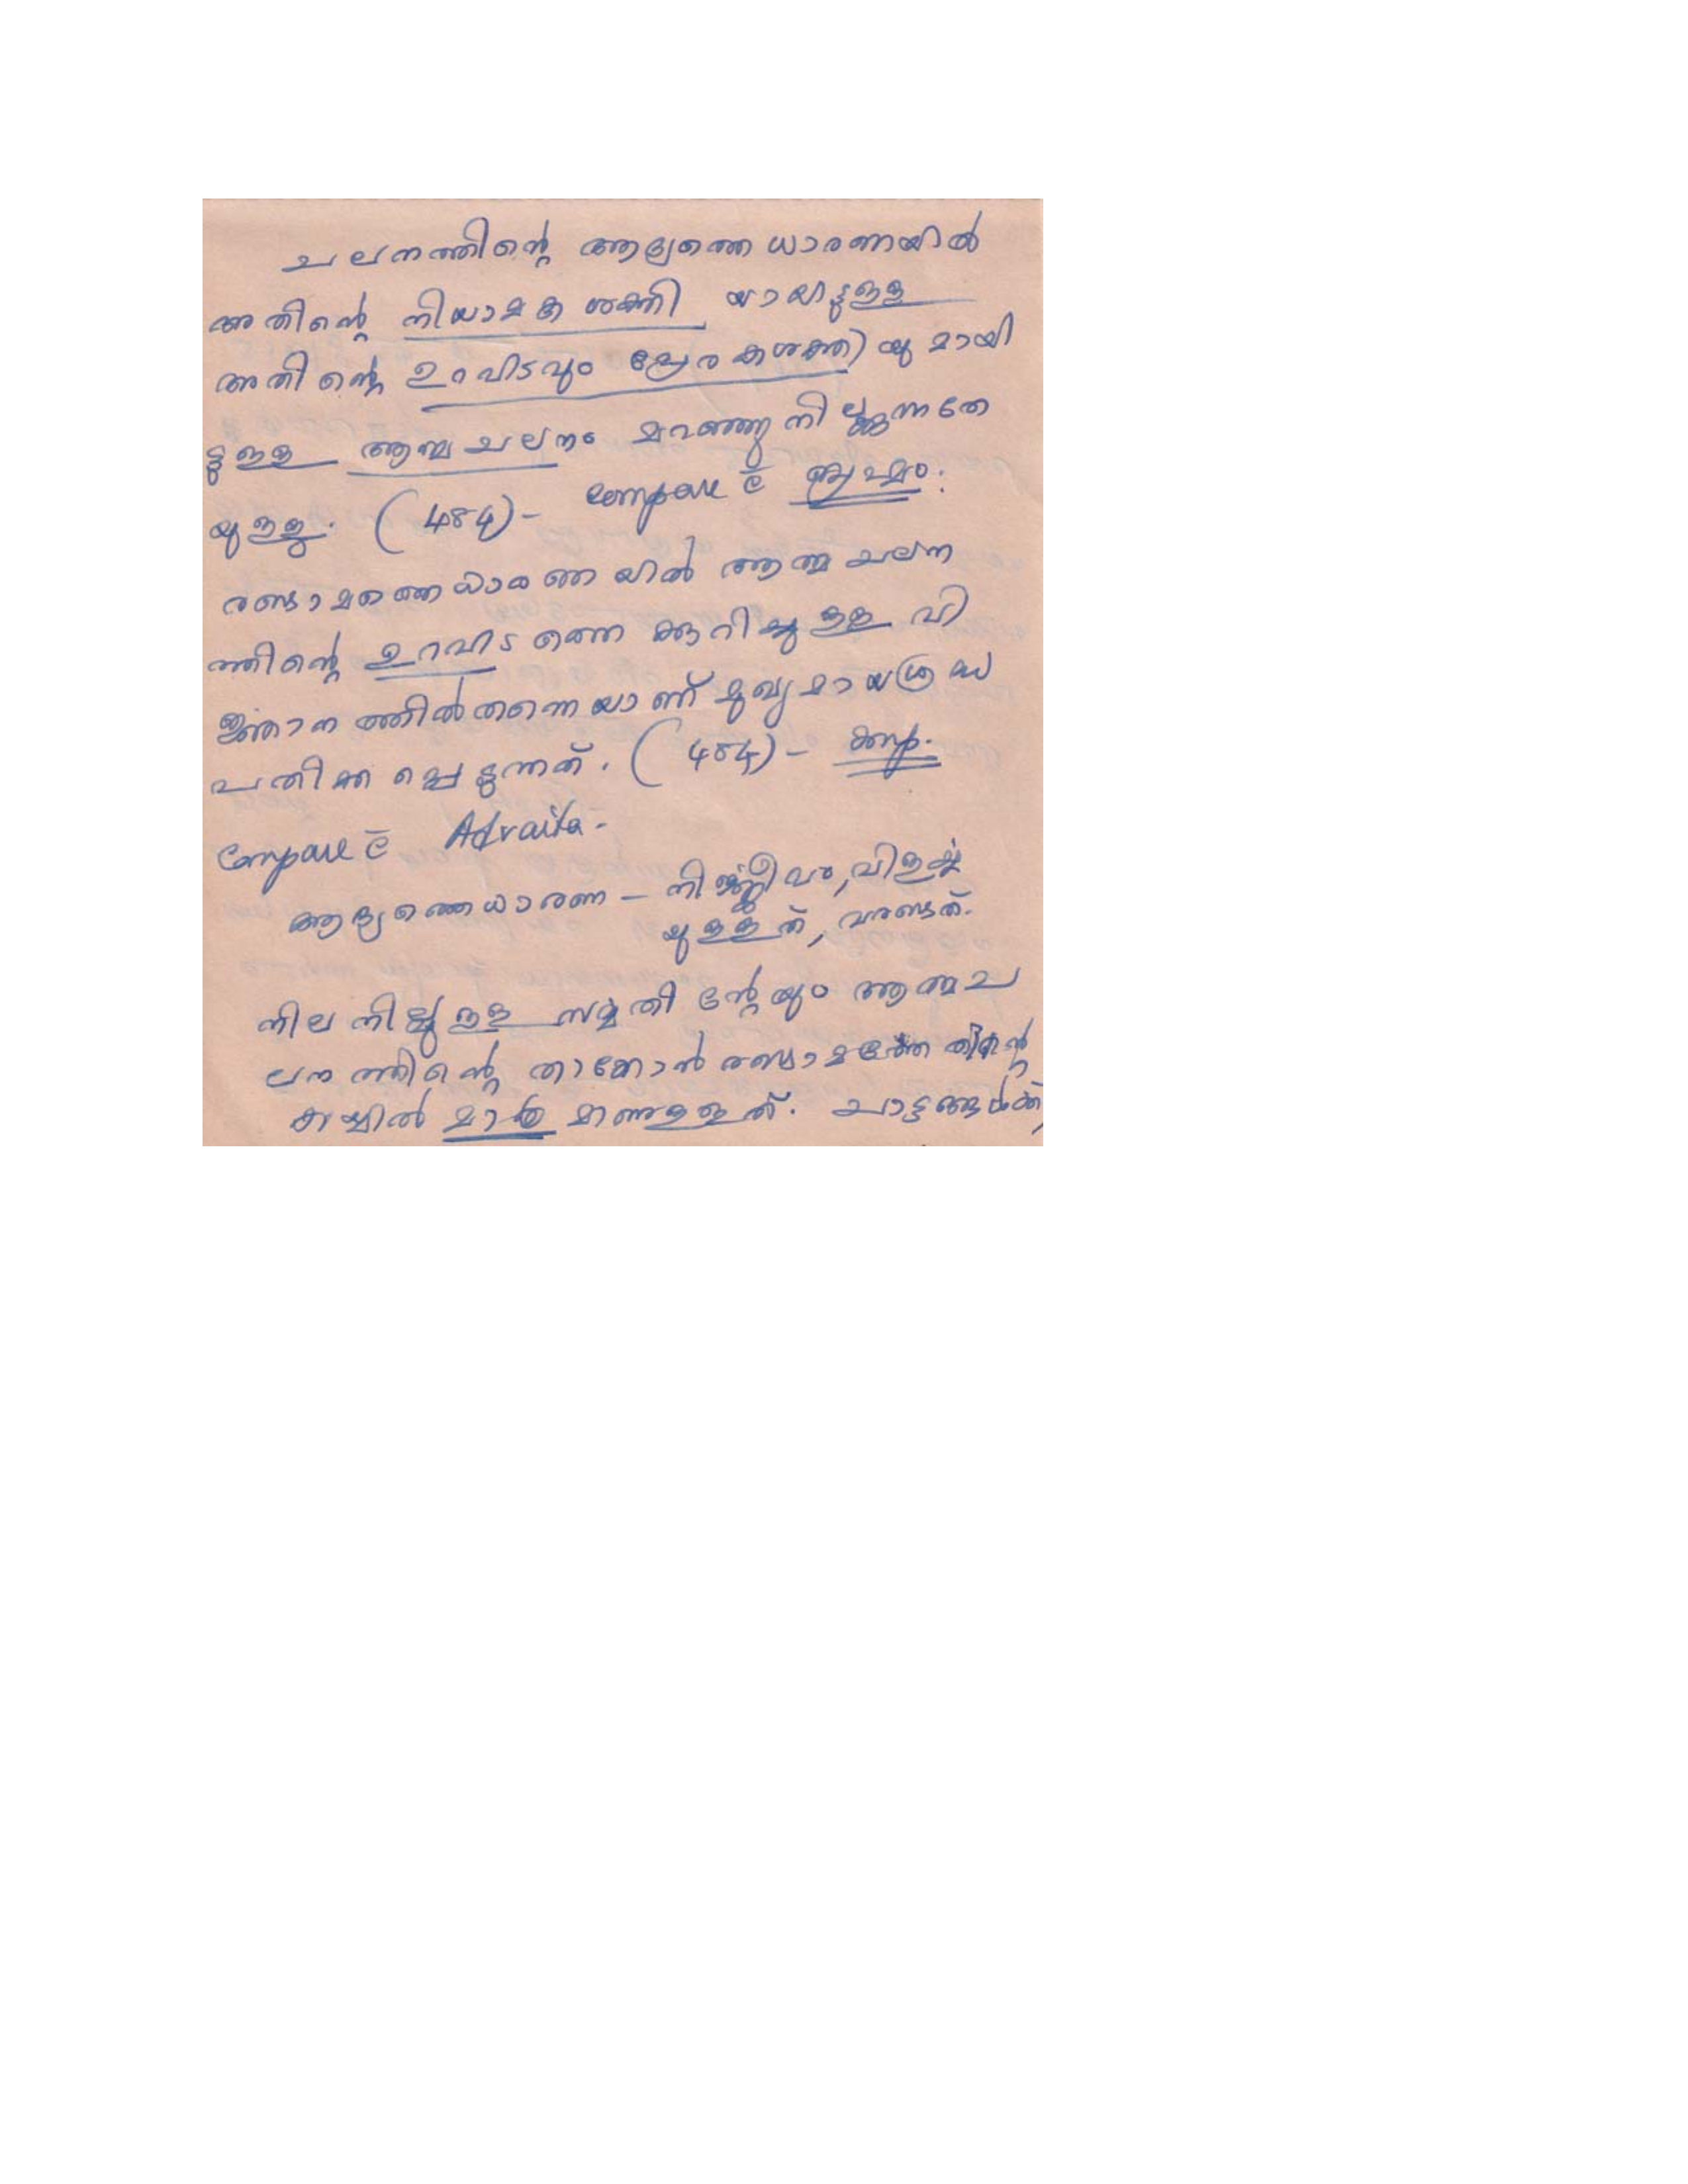 ചലനത്തിന്റെ ആദ്യത്തെ ധാരണയിൽ
അതിന്റെ നിയാമക ശക്തി യായിട്ടുള്ള
അതിന്റെ ഉറവിടവും പ്രേരകശക്തിയുമായി
ട്ടുള്ള ആത്മചലനം മറഞ്ഞുനില്ക്കുന്നതേ
യുള്ളു. (484)- Compare c̄
രണ്ടാമത്തെ ധാരണയിൽ ആത്മചലന
ത്തിന്റെ ഉറവിടത്തെ ക്കുറിച്ചുള്ള വി
ജ്ഞാനത്തിൽതന്നെയാണ് മുഖ്യമായശ്രദ്ധ
പതിക്കപ്പെടുന്നത്. (484)- Imp.
Compare c̄ Advaita-
ആദ്യത്തെധാരണ - നിർജ്ജീവം, വിളർച്ച
യുള്ളത്, വരണ്ടത്.
നില നില്പുള്ള സമസ്തതിന്റേയും ആത്മച
ലനത്തിന്റെ താക്കോൽ രണ്ടാമത്തേതിന്റെ
കയ്യിൽ മാത്രമാണുള്ളത്. ചാട്ടങ്ങൾക്ക്,